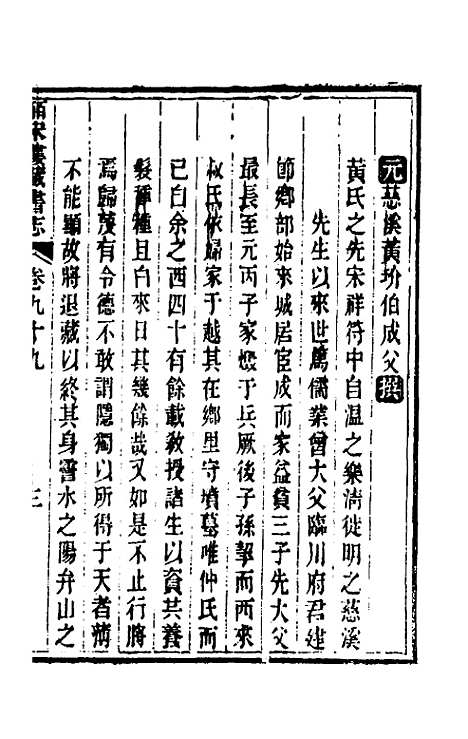 元慈溪黃玠伯成父撰
黃氏之先宋祥符中自溫之樂清徙明之慈溪
先生以來世篤儒業曾大父臨川府君建
節鄉部始來城居宦成而家益貧三子先大父
最長至元丙子家燬于兵厥後子孫挈而西來
叔氏依婦家于越其在鄉里守墳墓唯仲氏而
已自余之西四十有餘載教授諸生以資其養
髮種種且白來日其幾餘哉又如是不止行將
焉歸蔑有令德不敢謂隱獨以所得于天者病
不能顯故將退藏以終其身霅水之陽弁山之
皕宋樓藏書志
卷九十九
三